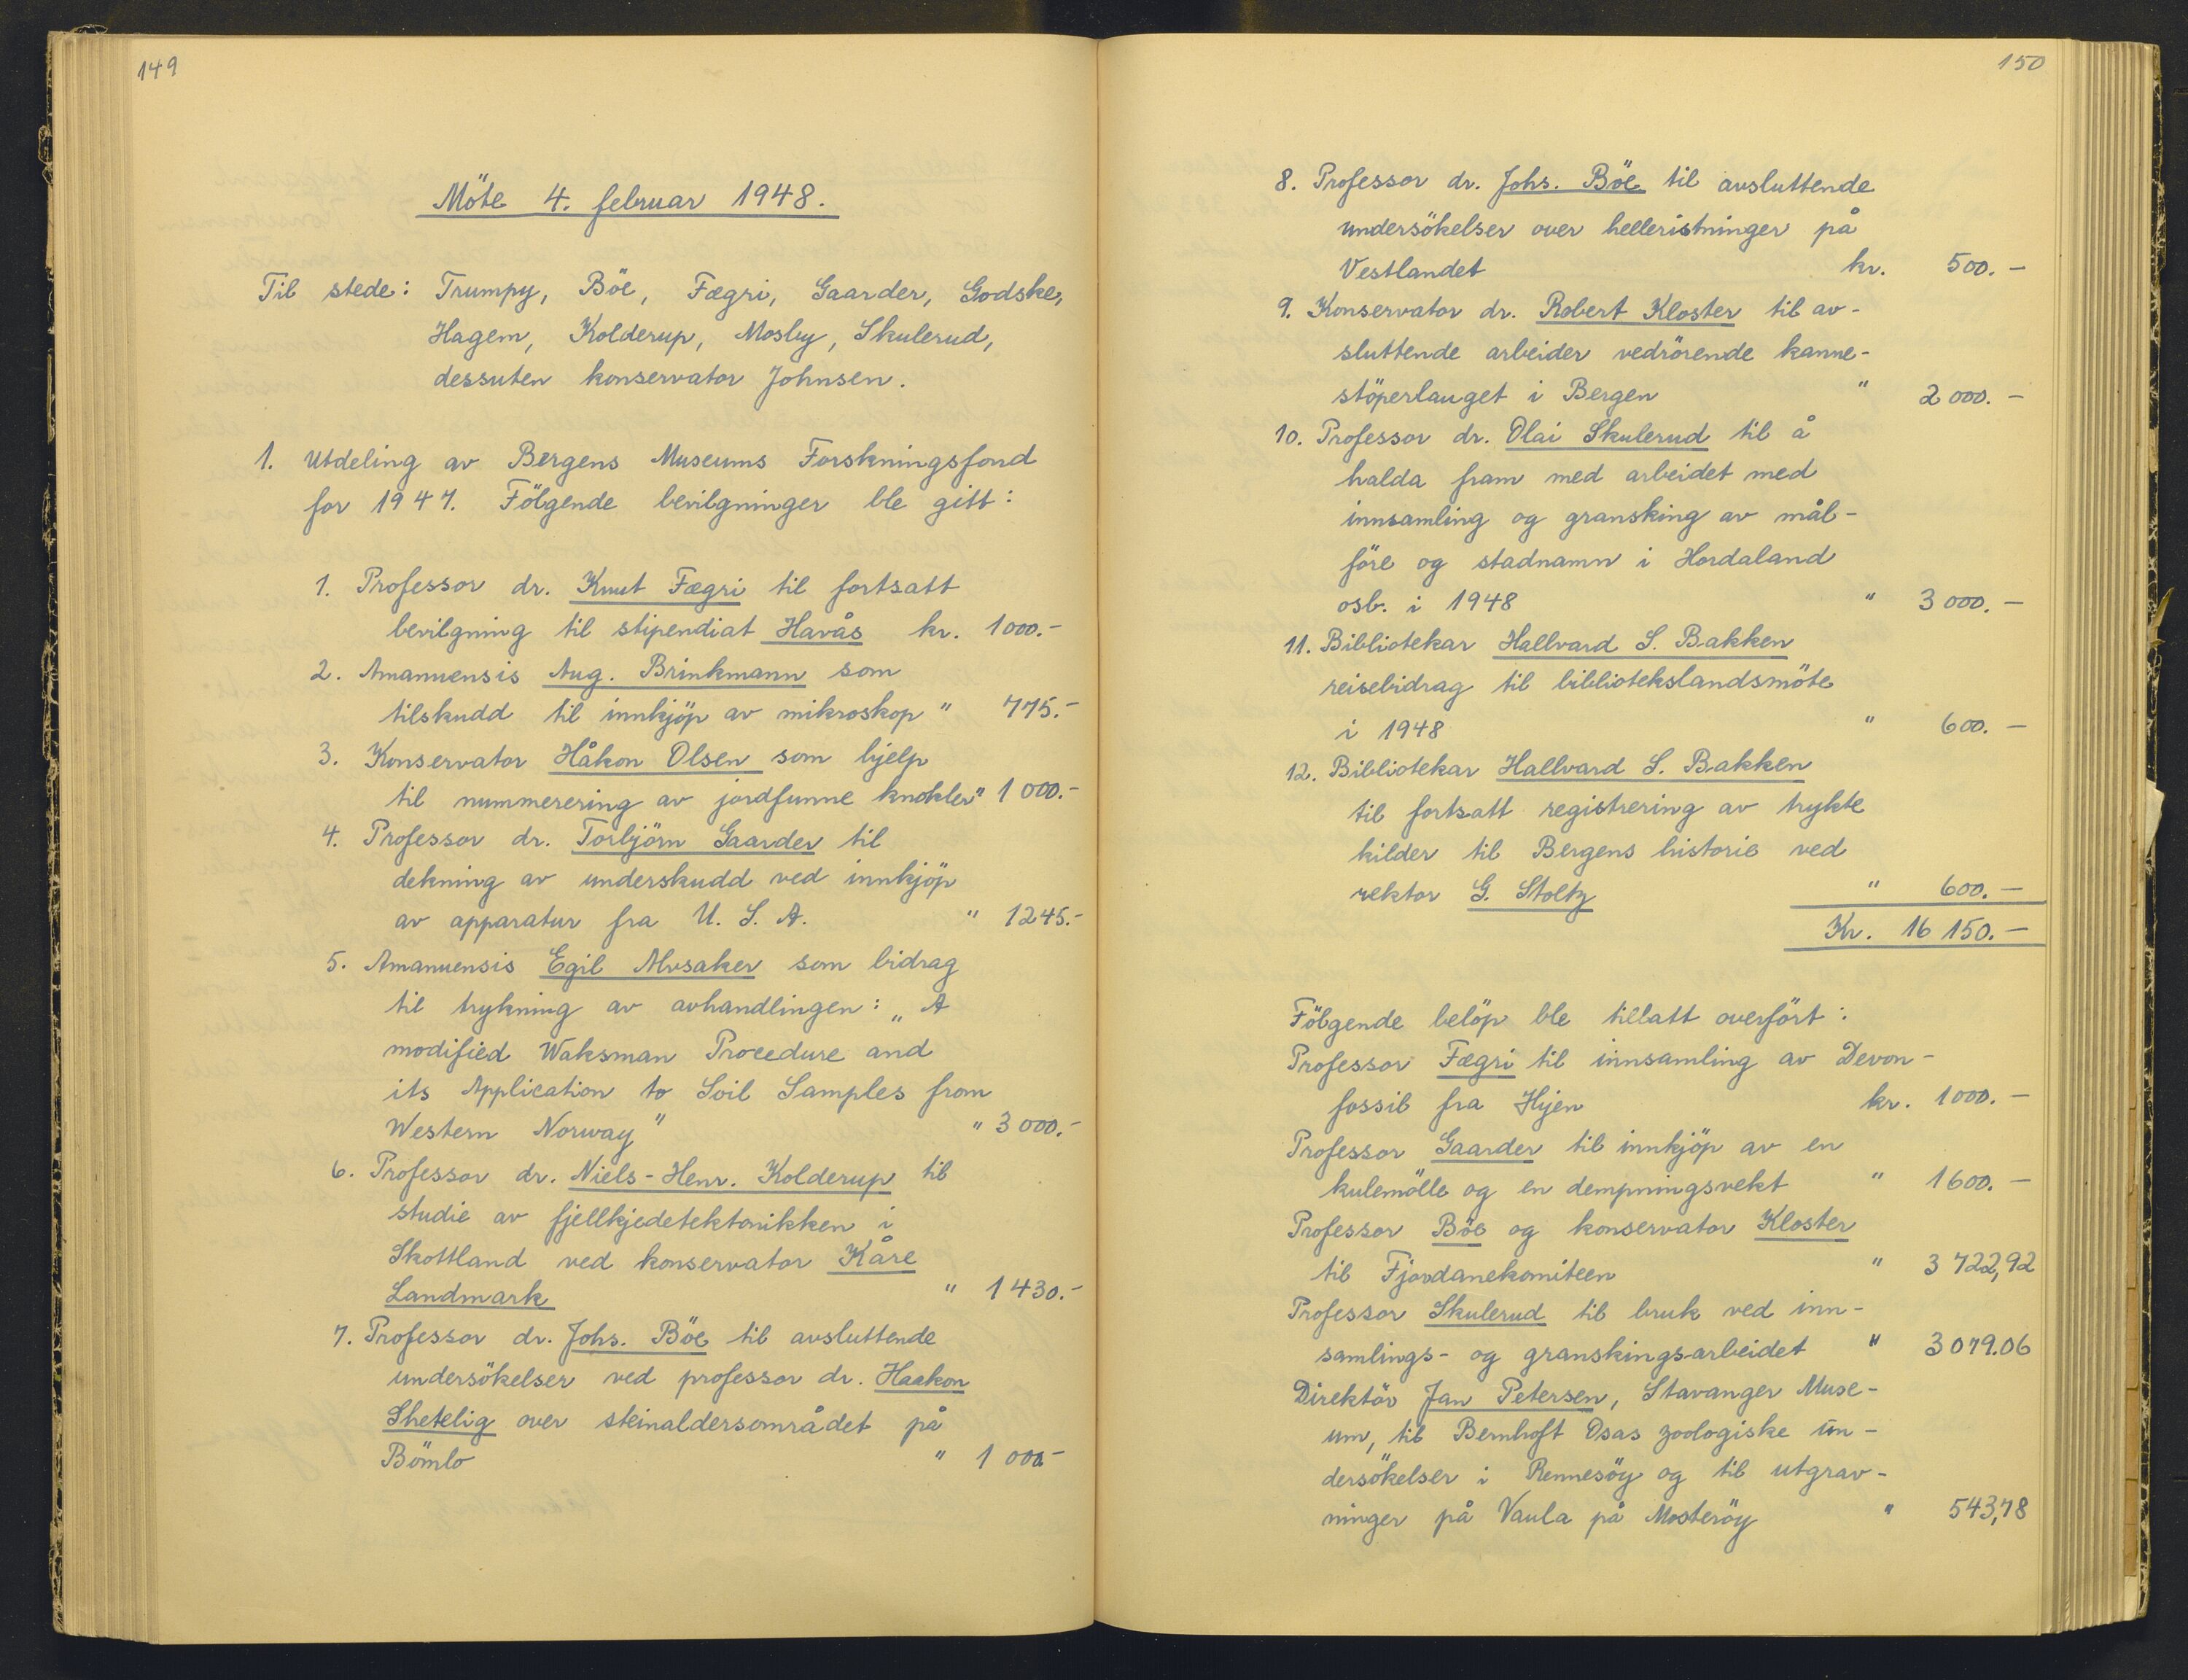 149
Möte 4. februar 1948.
Til stede: Trumpy, Böe, Fægri, Gaarder, Godske,
Hagem, Kolderup, Mosby, Skulerud,
dessuten konservator Johnsen.
1. Utdeling av Bergens Museums Forskningsfond
for 1947. Fölgende bevilgninger ble gitt:
1. Professor dr. Knut Fægri til fortsatt
bevilgning til stipendiat Havås kr. 1000.-
2. Amanuensis Aug. Brinkmann som
tilskudd til innkjöp av mikroskop " 775.-
3. Konservator Håkon Olsen som hjelp
til nummerering av jordfunne knokler " 1 000.-
4. Professor dr. Torbjörn Gaarder til
dekning av underskudd ved innkjöp
av apparatur fra U. S. A. " 1245.-
5. Amanuensis Egil Alvsaker som bidrag
til trykning av avhandlingen: „A
modified Waksman Procedure and
its Application to Soil Samples from
Western Norway" " 3 000.-
6. Professor dr. Niels-Henr. Kolderup til
studie av fjellkjedetektonikken i
Skottland ved konservator Kåre
Landmark " 1 430.-
7. Professor dr. Johs. Böe til avsluttende
undersökelser ved professor dr. Haakon
Shetelig over steinaldersområdet på
Bömlo " 1 000-
150
8. Professor dr. Johs. Böe til avsluttende
undersökelser over helleristninger på
Vestlandet kr. 500.-
9. Konservator dr. Robert Kloster til av-
sluttende arbeider vedrörende kanne-
stöperlauget i Bergen " 2 000.-
10. Professor dr. Olai Skulerud til å
halda fram med arbeidet med
innsamling og gransking av mål-
före og stadnamn i Hordaland
osb. i 1948 " 3 000.-
11. Bibliotekar Hallvard S. Bakken
reisebidrag til bibliotekslandsmöte
i 1948 " 600.-
12. Bibliotekar Hallvard S. Bakken
til fortsatt registrering av trykte
kilder til Bergens historie ved
rektor G. Stoltz " 600.-
Kr. 16 150.-
Fölgende belöp ble tillatt overfört:
Professor Fægri til innsamling av Devon-
fossil fra Hyen kr. 1000.-
Professor Gaarder til innkjöp av en
kulemölle og en dempningsvekt " 1600.-
Professor Böe og konservator Kloster
til Fjordanekomiteen " 3 722,92
Professor Skulerud til bruk ved inn-
samlings- og granskings-arbeidet " 3 079.06
Direktör Jan Petersen, Stavanger Muse-
um, til Bernhoft Osas zoologiske un-
dersökelser i Rennesöy og til utgrav-
ninger på Vaula på Mosteröy " 543,78